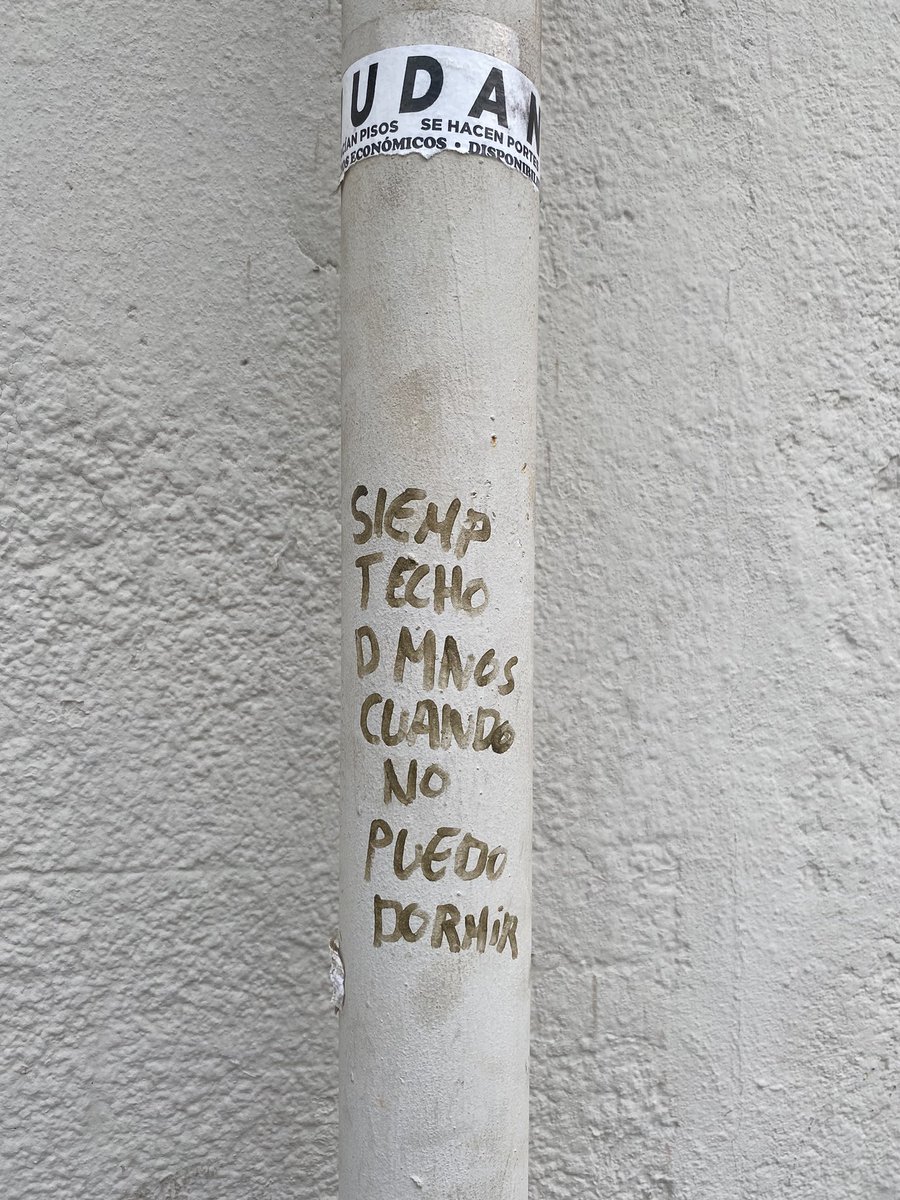 UDAN
CÍAN PISOS SE HACEN PORTES
OS ECONÓMICOS • DISPONIBIL
SIEMP
TECHO
D MNOS
CUANDO
NO
PUEDO
DORMiR